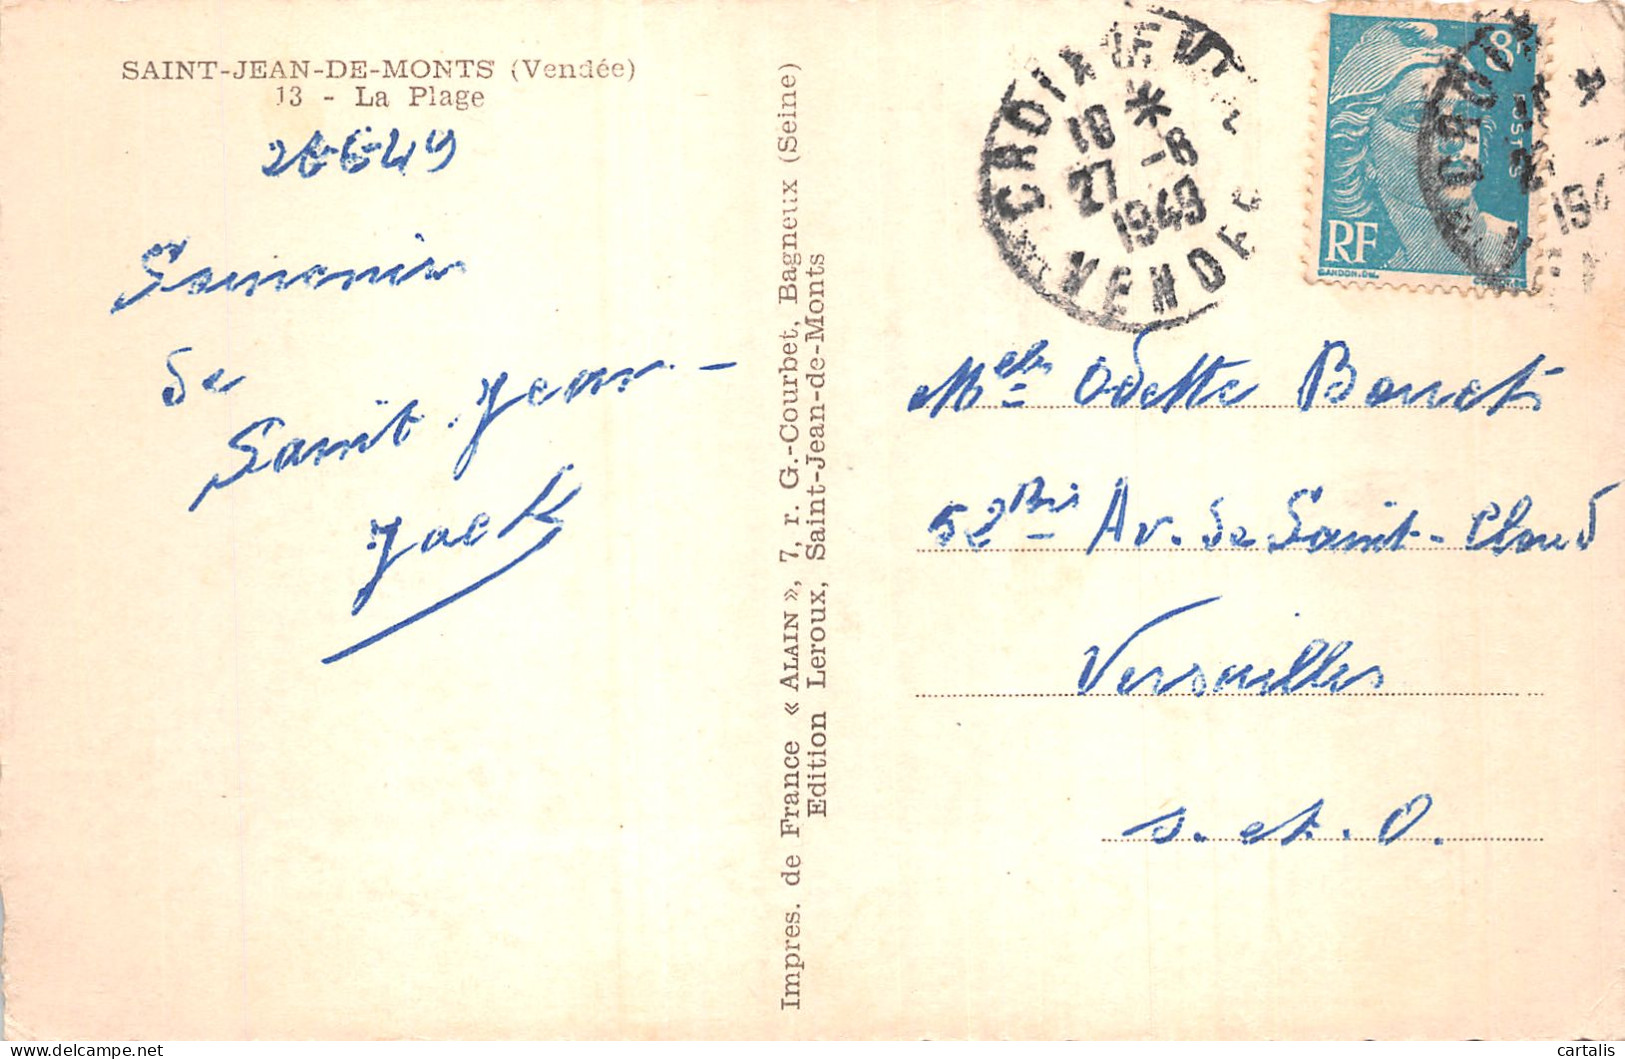 SAINT-JEAN-DE-MONTS (Vendée)
13 - La Plage
26-6-49
Souvenir
de
Saint Jean -
Jack
Impres. de France « ALAIN », 7, r. G.-Courbet, Bagneux (Seine)
Edition Leroux, Saint-Jean-de-Monts
CROIX DE VIE
18 *
27 -6
1949
VENDEE
8F
POSTES
RF
GANDON.DEL.
27
194
Melle Odette Bouet
52 Bis Av. de Saint-Cloud
Versailles
S. et. O.
cartalis